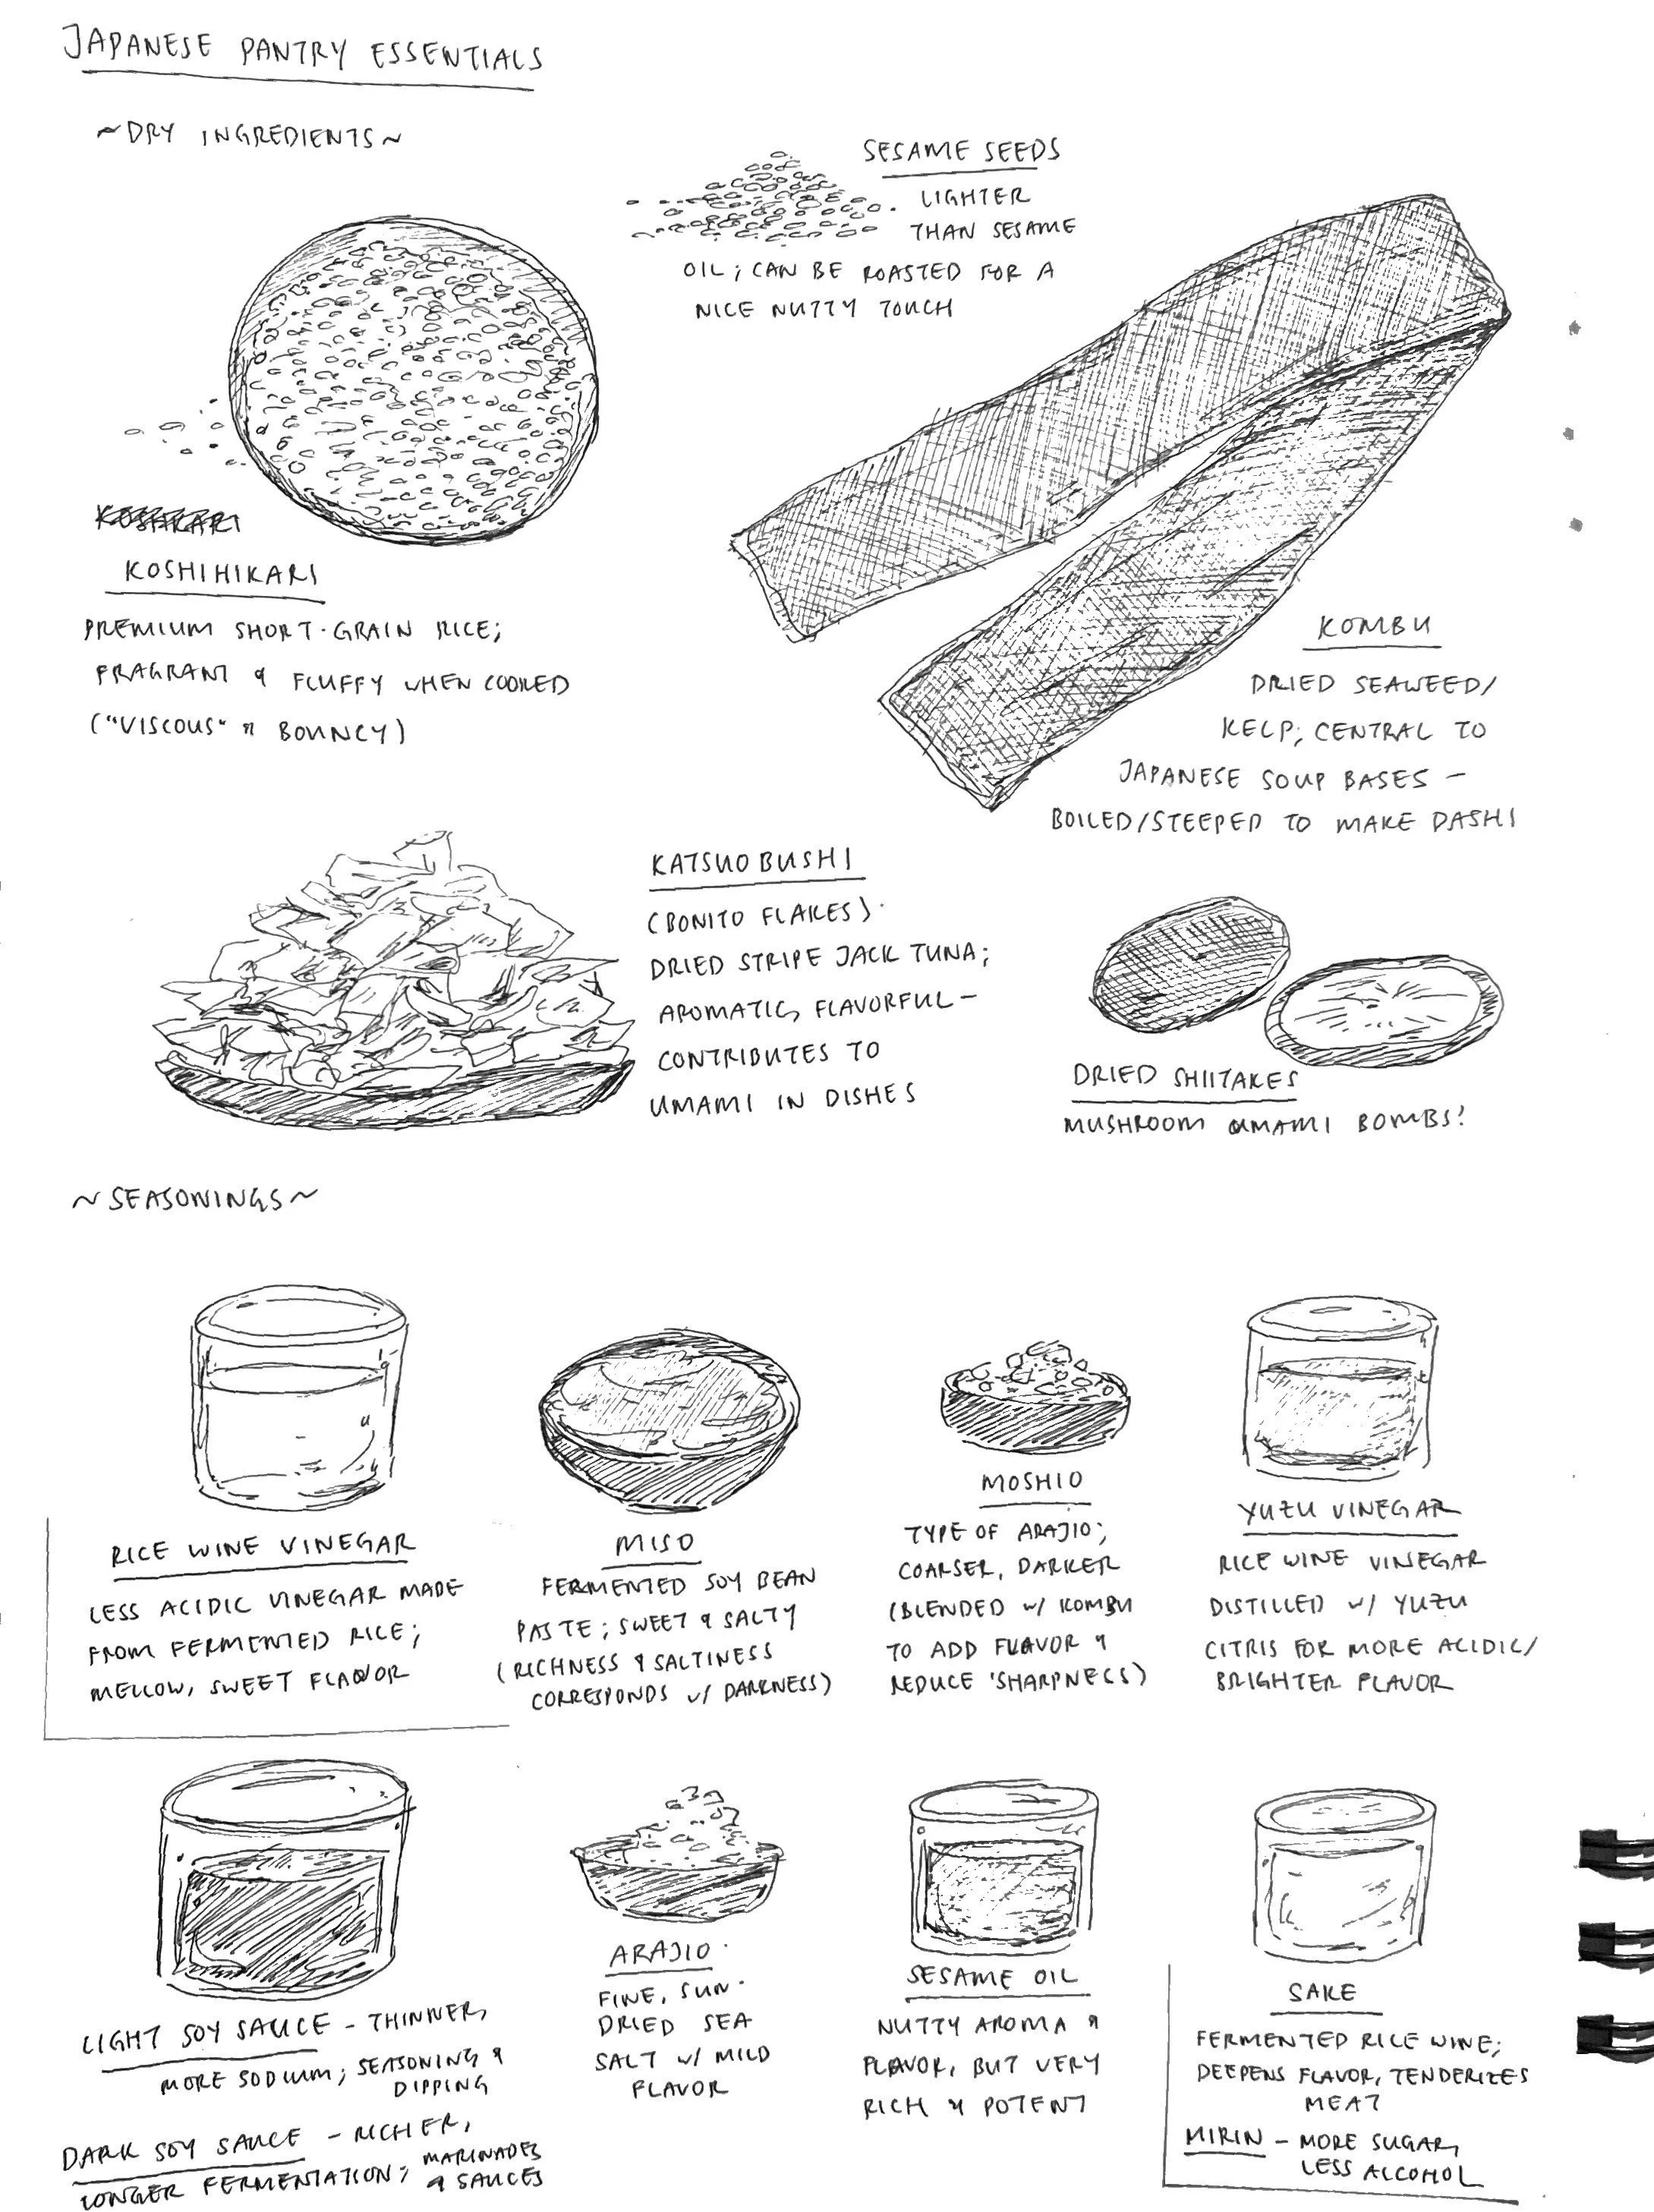 JAPANESE PANTRY ESSENTIALS
~DRY INGREDIENTS~
SESAME SEEDS
LIGHTER
THAN SESAME
OIL; CAN BE ROASTED FOR A
NICE NUTTY TOUCH
KOSHIHIKARI
PREMIUM SHORT-GRAIN RICE;
FRAGRANT & FLUFFY WHEN COOKED
("VISCOUS" & BOUNCY)
KOMBU
DRIED SEAWEED/
KELP; CENTRAL TO
JAPANESE SOUP BASES -
BOILED/STEEPED TO MAKE DASHI
KATSUOBUSHI
(BONITO FLAKES)
DRIED STRIPE JACK TUNA;
AROMATIC, FLAVORFUL -
CONTRIBUTES TO
UMAMI IN DISHES
DRIED SHIITAKES
MUSHROOM UMAMI BOMBS!
~SEASONINGS~
RICE WINE VINEGAR
LESS ACIDIC VINEGAR MADE
FROM FERMENTED RICE;
MELLOW, SWEET FLAVOR
MISO
FERMENTED SOY BEAN
PASTE; SWEET & SALTY
(RICHNESS & SALTINESS
CORRESPONDS W/ DARKNESS)
MOSHIO
TYPE OF ARAJIO;
COARSER, DARKER
(BLENDED W/ KOMBU
TO ADD FLAVOR &
REDUCE 'SHARPNESS)
YUZU VINEGAR
RICE WINE VINEGAR
DISTILLED W/ YUZU
CITRIS FOR MORE ACIDIC/
BRIGHTER FLAVOR
LIGHT SOY SAUCE - THINNER,
MORE SODIUM; SEASONING &
DIPPING
DARK SOY SAUCE - RICHER,
LONGER FERMENTATION; MARINADES
& SAUCES
ARAJIO
FINE, SUN-
DRIED SEA
SALT W/ MILD
FLAVOR
SESAME OIL
NUTTY AROMA &
FLAVOR, BUT VERY
RICH & POTENT
SAKE
FERMENTED RICE WINE;
DEEPENS FLAVOR, TENDERIZES
MEAT
MIRIN - MORE SUGAR,
LESS ALCOHOL